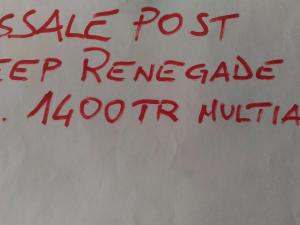 SSALE POST
EEP RENEGADE
. 1400TR MULTIA